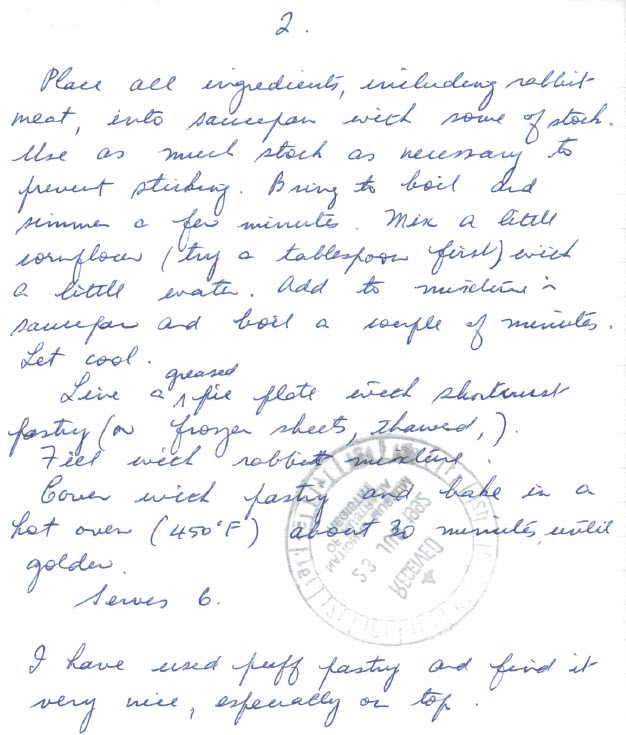 2.
Place all ingredients, including rabbit
meat, into saucepan with some of stock.
Use as much stock as necessary to
prevent sticking. Bring to boil and
simmer a few minutes. Mix a little
cornflour (try a tablespoon first) with
a little water. Add to mixture in
saucepan and boil a couple of minutes.
Let cool.
greased
Line a ^ pie plate with shortcrust
pastry (or frozen sheets, thawed,).
Fill with rabbit mixture.
Cover with pastry and bake in a
hot oven (450°F) about 30 minutes, until
golden.
Serves 6.
RECEIVED
I have used puff pastry and find it
very nice, especially on top.